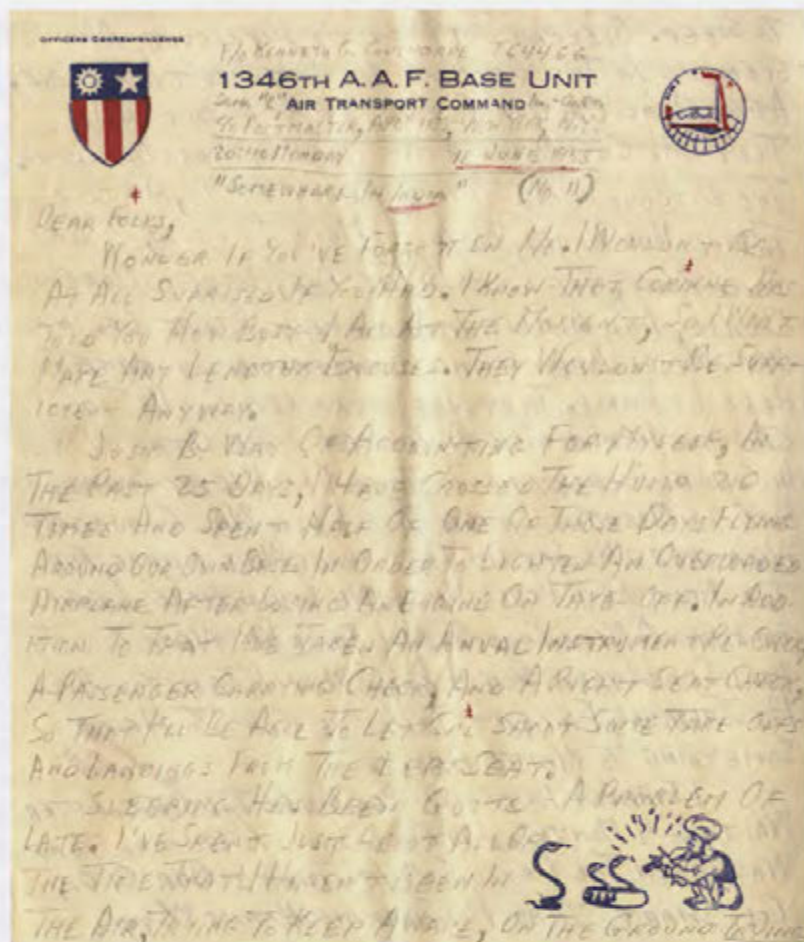 OFFICERS CORRESPONDENCE
F/O KENNETH
1346TH A. A. F. BASE UNIT
AIR TRANSPORT COMMAND
C/O POSTMASTER, NEW YORK, N.Y.
MONDAY 11 JUNE
"SOMEWHERE IN INDIA" (No. 11)
DEAR FOLKS,
WONDER IF YOU'VE FORGOTTEN ME. I WOULDN'T BE
AT ALL SUPRISED IF YOU HAD. I KNOW THAT CORINNE HAS
TOLD YOU HOW BUSY I AM AT THE MOMENT, SO I WON'T
MAKE ANY LENGTHY EXCUSES. THEY WOULDN'T BE SUFF-
ICIENT ANYWAY.
JUST BY WAY OF ACCOUNTING FOR MYSELF, IN
THE PAST 25 DAYS, I HAVE CROSSED THE HUMP
TIMES AND SPENT HALF OF ONE OF THOSE DAYS FLYING
AROUND OUR OWN BASE IN ORDER TO LIGHTEN AN OVERLOADED
AIRPLANE AFTER LOSING AN ENGINE ON TAKE-OFF. IN ADD-
ITION TO THAT I'VE TAKEN AN ANUAL INSTRUMENT RE-CHECK,
A PASSENGER CARRYING CHECK, AND A RIGHT SEAT CHECK,
SO THAT I'LL BE ABLE TO LET SOME TAKE OFFS
AND LANDINGS FROM THE SEAT.
SLEEPING HAS BEEN QUITE A PROBLEM OF
LATE. I'VE SPENT JUST ABOUT ALL OF
THE TIME THAT I HAVEN'T BEEN IN
THE AIR, TRYING TO KEEP AWAKE, ON THE GROUND TRYING